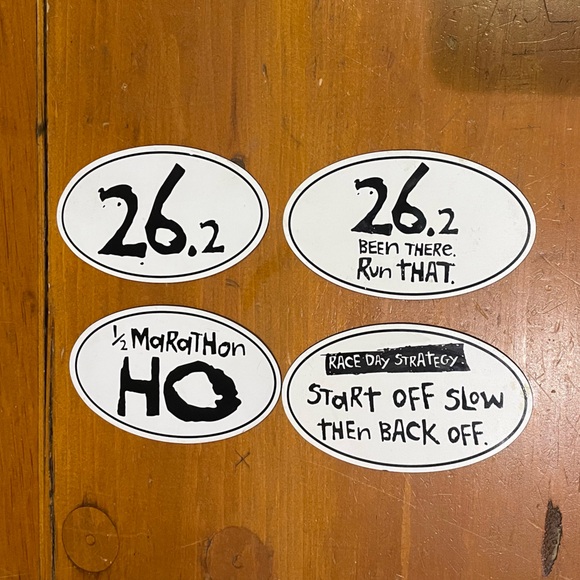 26.2
26.2
BEEN THERE.
RUN THAT.
1/2 MARATHON
HO
RACE DAY STRATEGY:
START OFF SLOW
THEN BACK OFF.